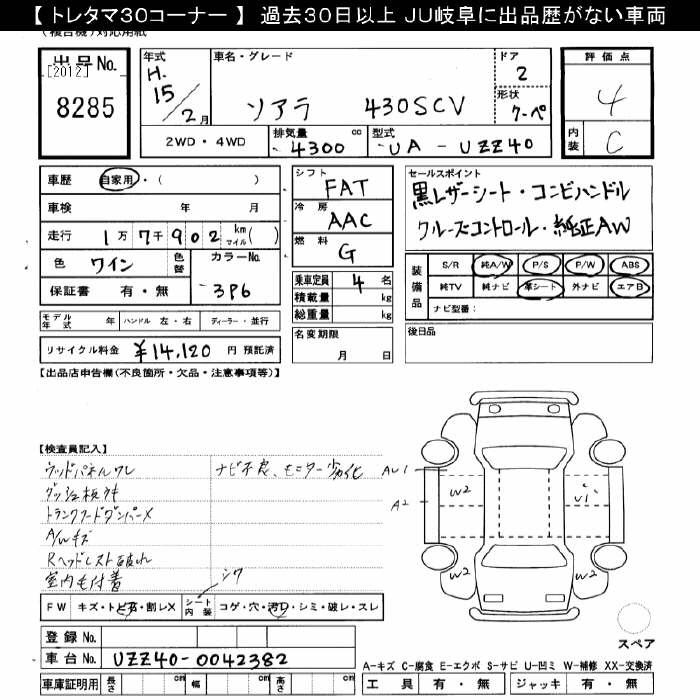 【 トレタマ30コーナー 】 過去30日以上 JU岐阜に出品歴がない車両
(複合機) 対応用紙
出品No.
[2012]
8285
年式
H.
15/2月
車名・グレード
ソアラ 430SCV
ドア
2
形状
クーペ
評価点
4
内装
C
2WD・4WD
排気量 4300 cc
型式 UA-UZZ40
車歴 自家用・( )
車検 年 月
走行 1万7千902 km マイル( )
色 ワイン 色替 カラーNo. 3P6
保証書 有・無
シフト FAT
冷房 AAC
燃料 G
乗車定員 4 名
積載量 kg
総重量 kg
セールスポイント
黒レザーシート・コンビハンドル
クルーズコントロール・純正AW
装備品
S/R 純A/W P/S P/W ABS
純TV 純ナビ 革シート 外ナビ エアB
ナビ型番:
モデル年式 年 ハンドル 左・右 ディーラー・並行
リサイクル料金 ¥14,120 円 預託済
名変期限
月 日
後日品
【出品店申告欄(不良箇所・欠品・注意事項等)】
【検査員記入】
ウッドパネルワレ ナビ不良、モニター劣化
ダッシュ板キズ
トランクフードダンパーX
A/Wキズ
Rヘッドレスト破れ
室内毛付着
シワ
FW キズ・トビ石・割レX シート内装 コゲ・穴・汚レ・シミ・破レ・スレ
AU1
A2
W2
U1
W2
W2
スペア
登録No.
車台No. UZZ40-0042382
車庫証明用 長さ cm 幅 cm 高さ cm
A-キズ C-腐食 E-エクボ S-サビ U-凹ミ W-補修 XX-交換済
工具 有・無 ジャッキ 有・無